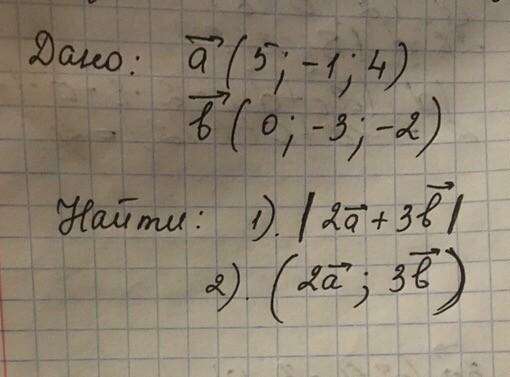 Дано: a⃗ (5; -1; 4)
b⃗ (0; -3; -2)
Найти: 1). |2a⃗ + 3b⃗|
2). (2a⃗ ; 3b⃗)